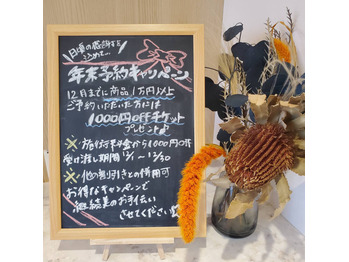 日頃の感謝を
こめて…
年末予約キャンペーン
12月までに商品1万円以上
ご予約いただいた方には
1000円OFFチケット
プレゼント♪
※施術料金から1000円OFF
受け渡し期間 12/1〜12/30
※他の割引きとの併用可
お得なキャンペーンで
継続美のお手伝い
させてください